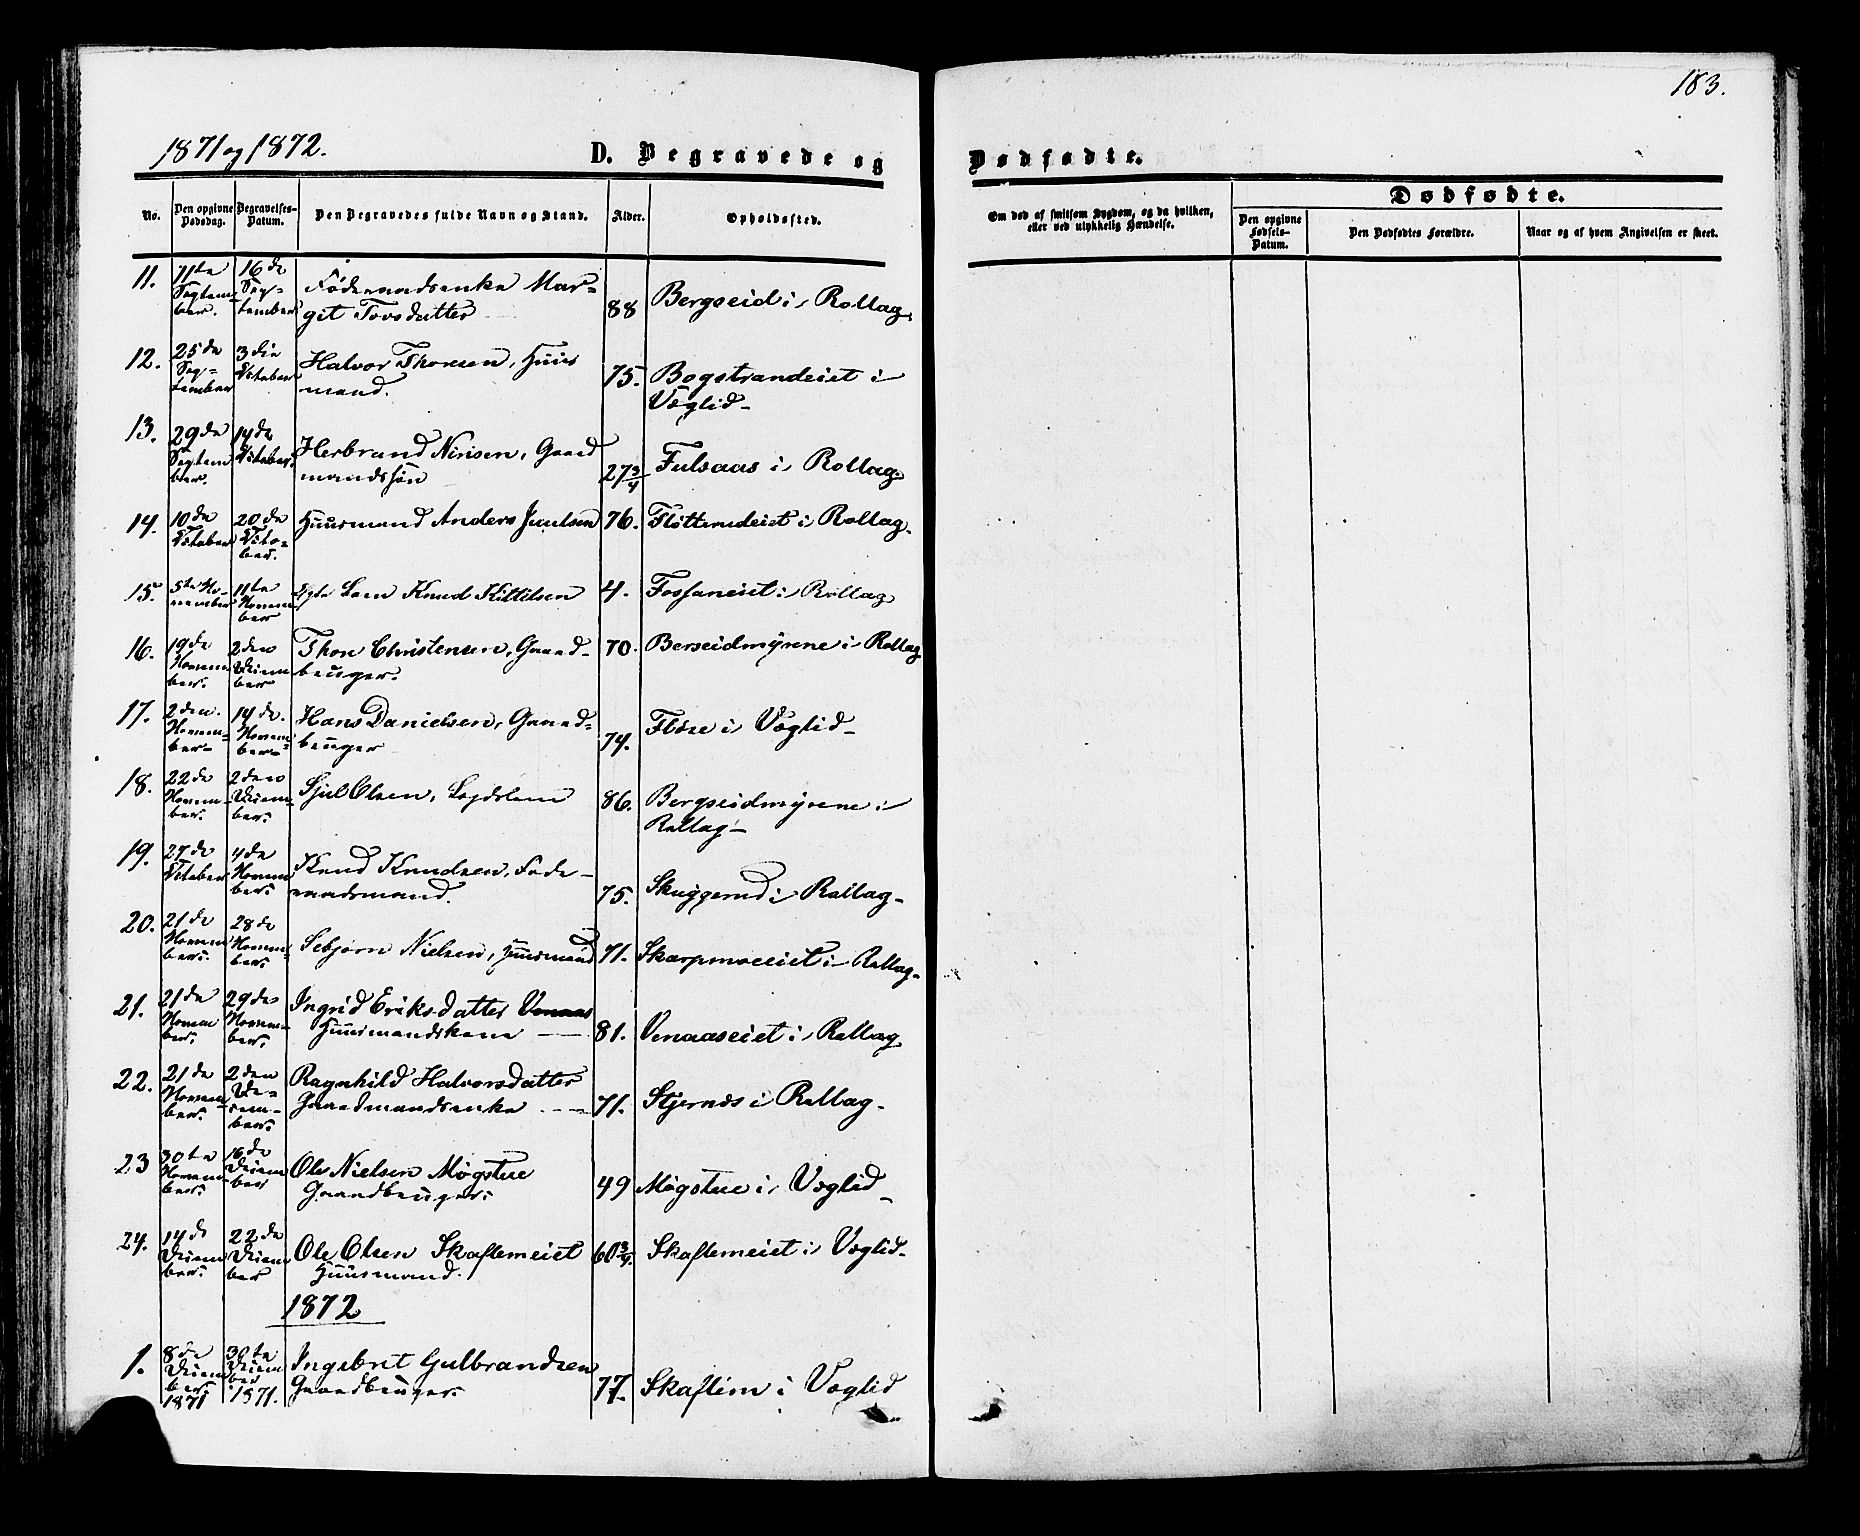 183.
1871 og 1872.
D. Begravede og Dødfødte.
No. Den opgivne Dødsdag. Begravelses-Datum. Den Begravedes fulde Navn og Stand. Alder. Opholdssted.
Om død af smitsom Sygdom, og da hvilken, eller ved ulykkelig Hændelse.
Dødfødte.
Den opgivne Fødsels-Datum. Den Dødfødtes Forældre. Naar og af hvem Angivelsen er skeet.
11. 11te September. 16de September Føderaadsenke Margit Tovsdatter 88 Bergseid i Rollag.
12. 25de September 3die October Halvor Thoresen, Huusmand. 75. Bogstrandeiet i Vøglid
13. 29de September. 14de October. Herbrand Nirisen, Gaardmandssøn 27 3/4 Fulsaas i Rollag.
14. 10de October 20de October. Huusmand Anders Juulsen 76. Fløtterudeiet i Rollag.
15. 5te November 11te November Knud Kittilsen 4. Fossaneiet i Rollag
16. 19de November. 2den December Thore Christensen, Gaardbruger. 70. Berseidmyrene i Rollag
17. 2den November 14de November Hans Danielsen, Gaardbruger 74. Fløse i Vøglid
18. 22de November. 2den December. Sjul Olsen, Lægdslem 86. Bergseidmyrene i Rollag
19. 27de October 4de November. Knud Knudsen, Føderaadsmand. 75. Skuggerud i Rollag
20. 21de November. 28de November. Sebjørn Nielsen, Huusmand 71. Skarpmoeiet i Rollag
21. 21de November. 29de November. Ingrid Eriksdatter Venaas Huusmandskone 81. Venaaseiet i Rollag
22. 21de November. 2den December. Ragnhild Halvorsdatter Gaardmandsenke 71. Stjernes i Rollag
23 30te November. 16de December Ole Nielsen Møgstue Gaardbruger. 49 Møgstue i Vøglid
24. 14de December. 22de December Ole Olsen Skaftemeiet Huusmand. 60 3/4. Skaftemeiet i Vøglid
1872
1. 8de December. 1871 30te December 1871. Ingebret Gulbrandsen Gaardbruger. 77. Skaftim i Vøglid